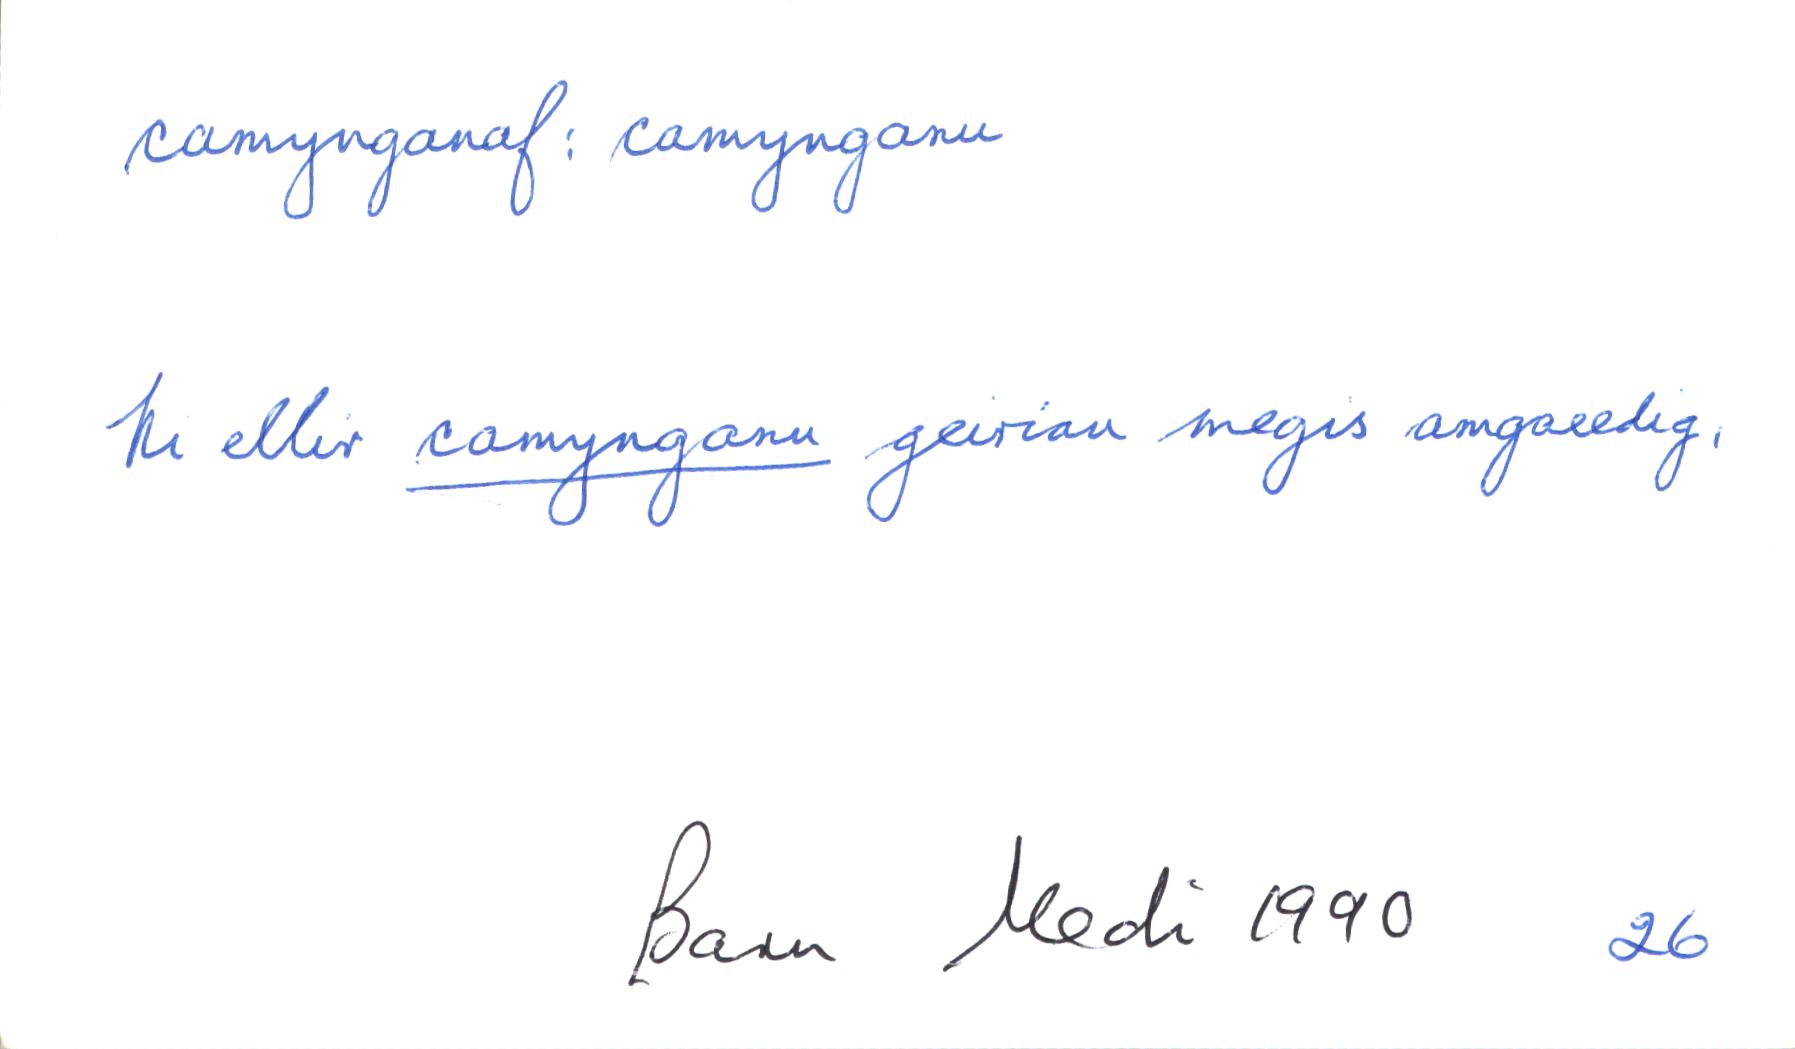 camynganaf: camynganu
Ni ellir camynganu geiriau megis amgaeedig.
Barn Medi 1990 26